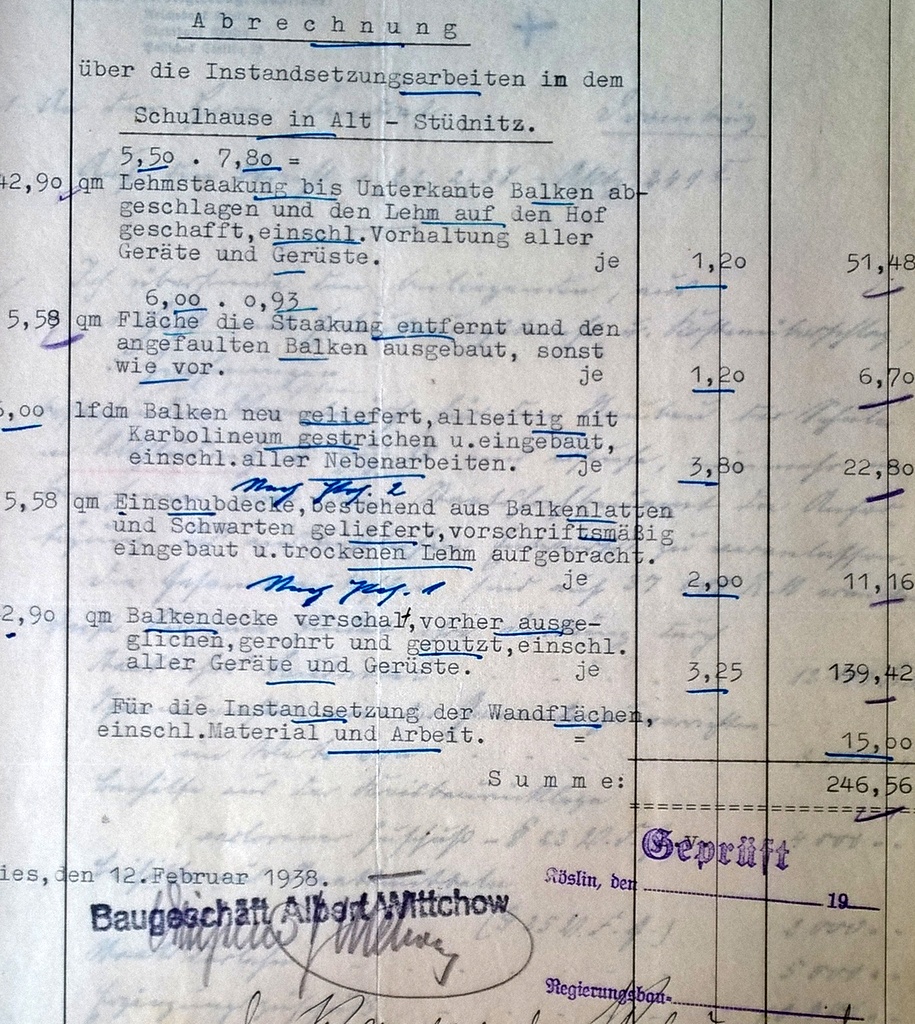 A b r e c h n u n g
über die Instandsetzungsarbeiten in dem
Schulhause in Alt - Stüdnitz.
5,50 . 7,80 =
42,90 qm Lehmstaakung bis Unterkante Balken ab-
geschlagen und den Lehm auf den Hof
geschafft,einschl.Vorhaltung aller
Geräte und Gerüste. je 1,20 51,48
6,00 . 0,93
5,58 qm Fläche die Staakung entfernt und den
angefaulten Balken ausgebaut, sonst
wie vor. je 1,20 6,70
6,00 lfdm Balken neu geliefert,allseitig mit
Karbolineum gestrichen u.eingebaut,
einschl.aller Nebenarbeiten. je 3,80 22,80
5,58 qm Einschubdecke,bestehend aus Balkenlatten
und Schwarten geliefert,vorschriftsmäßig
eingebaut u.trockenen Lehm aufgebracht.
je 2,00 11,16
2,90 qm Balkendecke verschalt,vorher ausge-
glichen,gerohrt und geputzt,einschl.
aller Geräte und Gerüste. je 3,25 139,42
Für die Instandsetzung der Wandflächen,
einschl.Material und Arbeit. = 15,00
S u m m e: 246,56
Geprüft
ies,den 12.Februar 1938.
Köslin, den 19
Baugeschäft Albert Wittchow
Regierungsbau-